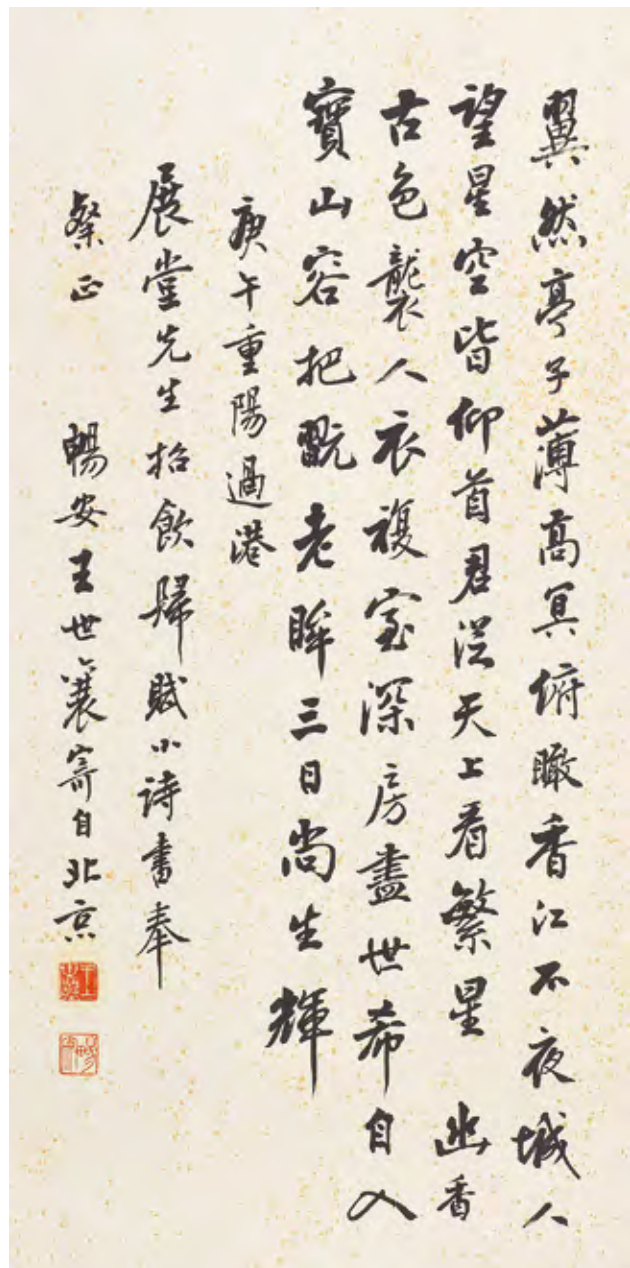 翼然亭子薄高冥俯瞰香江不夜城人
望星空皆仰首君從天上看繁星 幽香
古色襲人衣複室深房盡世希自入
寶山容把翫老眸三日尚生輝
庚午重陽過港
展堂先生招飲歸賦小詩書奉
粲正 暢安王世襄寄自北京
王世襄
暢安